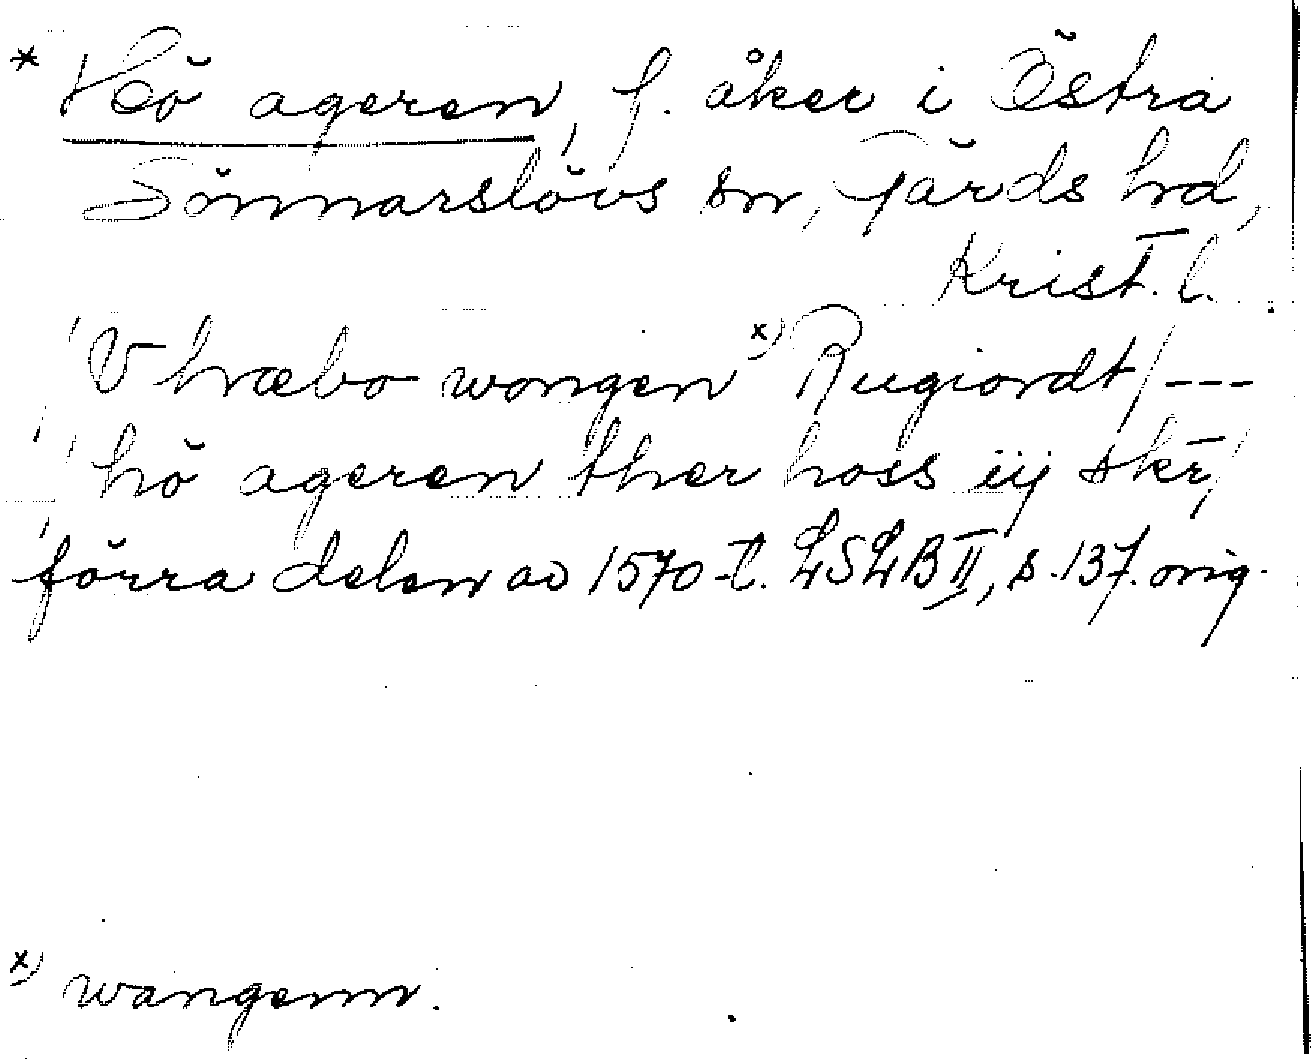 * Hö ageren, f. åker i Östra
Sönnarslövs sn, Gärds hd,
Krist. l.
V hræbo wongen x) Rugiordt/ ---
hö ageren ther hoss iij skr/
förra delen av 1570-t. LSLB II, s. 137. orig.
x) wangenn.